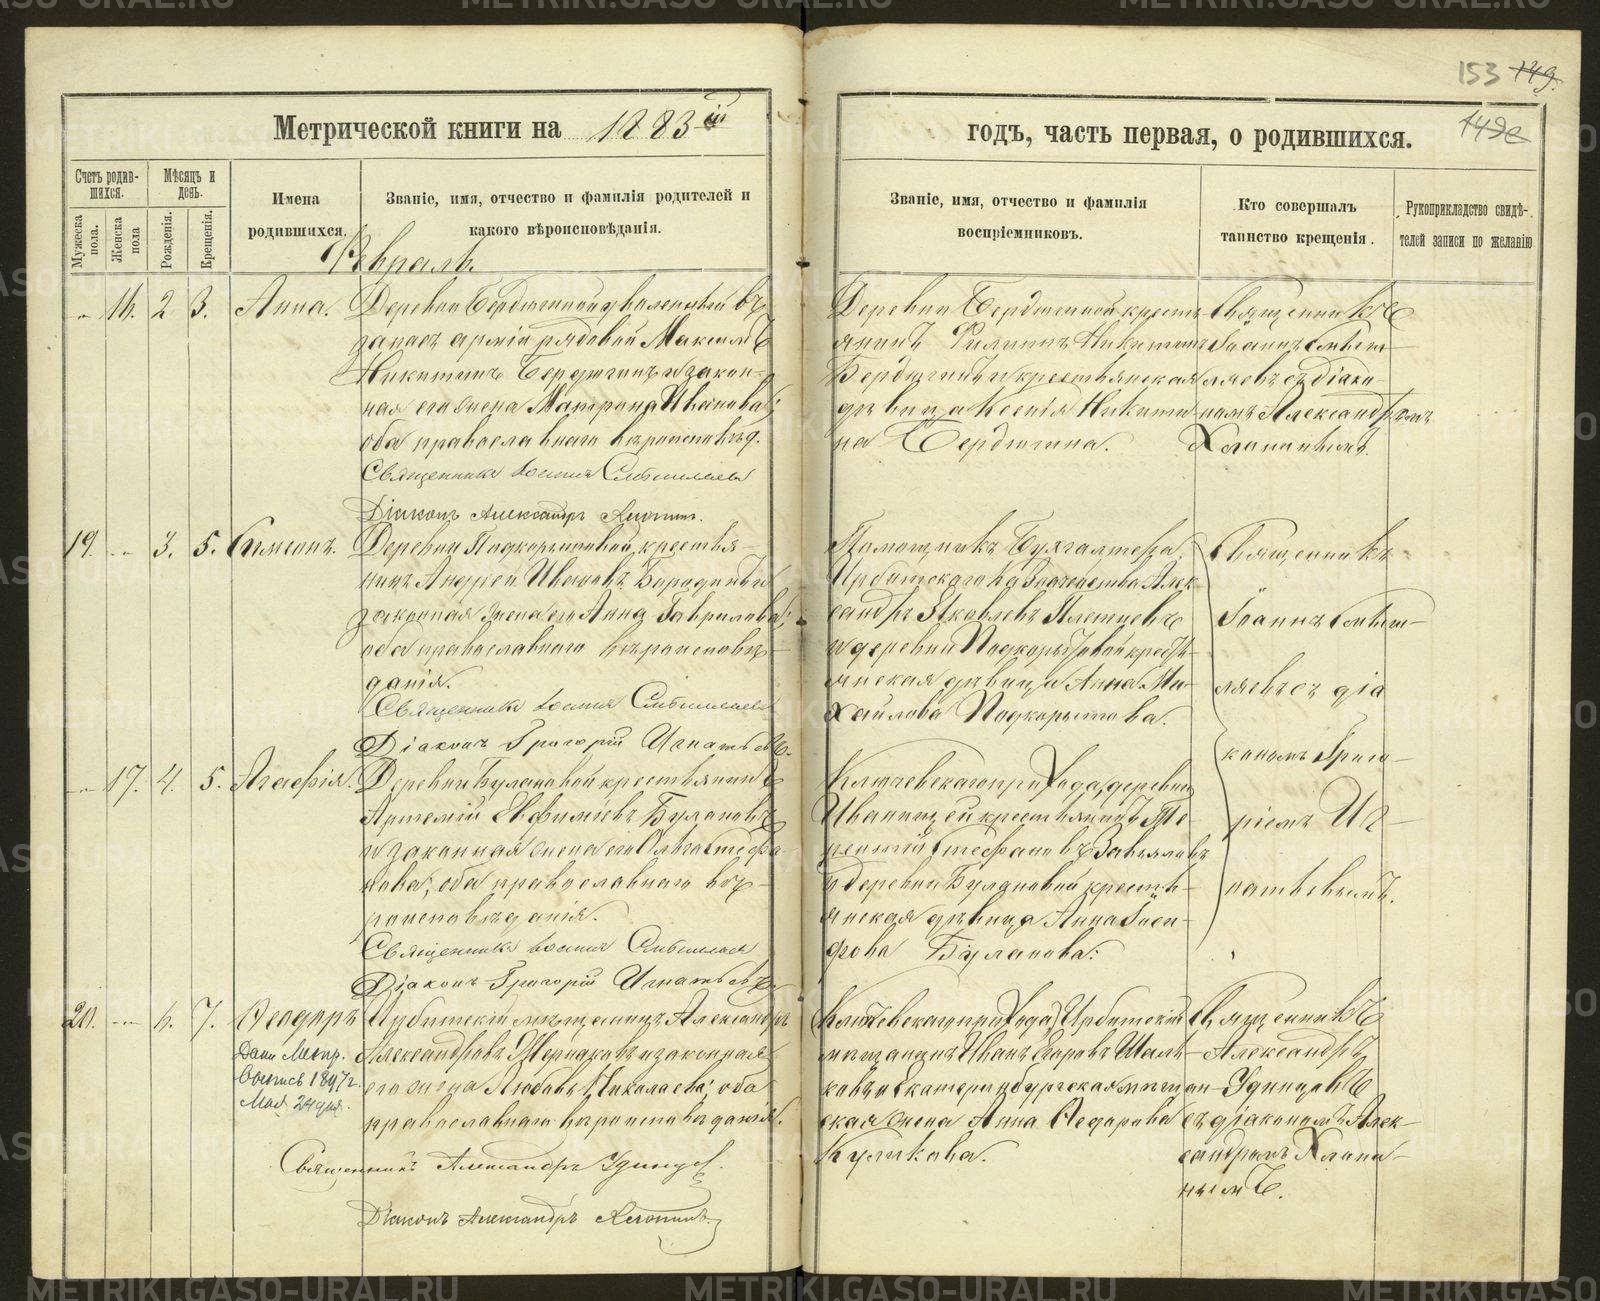 153 149.
149
Метрической книги на 1883 й
годъ, часть первая, о родившихся.
Счетъ родив-
шихся.
Мужеска пола.
Женска пола
Мѣсяцъ и день.
Рожденія.
Крещенія.
Имена
родившихся.
Званіе, имя, отчество и фамилія родителей и
какого вѣроисповѣданія.
Званіе, имя, отчество и фамилія
воспріемниковъ.
Кто совершалъ
таинство крещенія.
Рукоприкладство свидѣ-
телей записи по желанію
Февраль.
16. 2 3. Анна.
Деревни Бердюгиной уволенный въ
запасъ арміи рядовой Максимъ
Никитинъ Бердюгинъ и закон-
ная его жена Матрона Иванова;
оба православнаго вѣроисповѣд.
Священникъ Іоаннъ
Діаконъ Александръ Хлопинъ.
Деревни Бердюгиной кресть-
янинъ Филиппъ Никитинъ
Бердюгинъ и крестьянская
дѣвица Ксенія Никити-
на Бердюгина.
Священникъ
Іоаннъ
съ діако-
номъ Александромъ
19. 3. 5. Симеонъ.
Деревни Подкорытовой крестья-
нинъ Андрей Ивановъ Бородинъ и
законная жена его Анна Гаврилова;
оба православнаго вѣроисповѣ-
данія.
Священникъ Іоаннъ
Діаконъ Григорій Игнатьевъ.
Помощникъ Бухгалтера
Ирбитскаго Казначейства Алек-
сандръ Яковлевъ
и деревни Подкорытовой кресть-
янская дѣвица Анна Ми-
хайлова Подкорытова.
Священникъ
Іоаннъ
съ діа
кономъ Григо-
ріемъ Иг-
натьевымъ.
17. 4. 5. Агафія.
Деревни Булановой крестьянинъ
Артемій Евфиміевъ Булановъ
и законная жена его Ольга Стефа-
нова; оба православнаго вѣ-
роисповѣданія.
Священникъ Іоаннъ
Діаконъ Григорій Игнатьевъ
Ключевскаго прихода, деревни
крестьянинъ Те-
рентій Стефановъ Завьяловъ
и деревни Булановой кресть-
янская дѣвица Анна Іоси-
фова Буланова.
20. 6. 7. Ѳеодоръ
Дана Метр.
Выпись 1897 г.
Мая 24 дня.
Ирбитскій мѣщанинъ Александръ
Александровъ Жернаковъ и законная
его жена Любовь Николаева; оба
православнаго вѣроисповѣданія.
Священникъ Александръ Удинцев.
Діаконъ Александръ Хлопинъ
Ключевскаго прихода, Ирбитскій
мѣщанинъ Иванъ Егоровъ
и Екатеринбургская мѣщан-
ская жена Анна Ѳедорова
Куликова.
Священникъ
Александръ
Удинцевъ
съ діакономъ Алек-
сандромъ Хлопи-
нымъ.